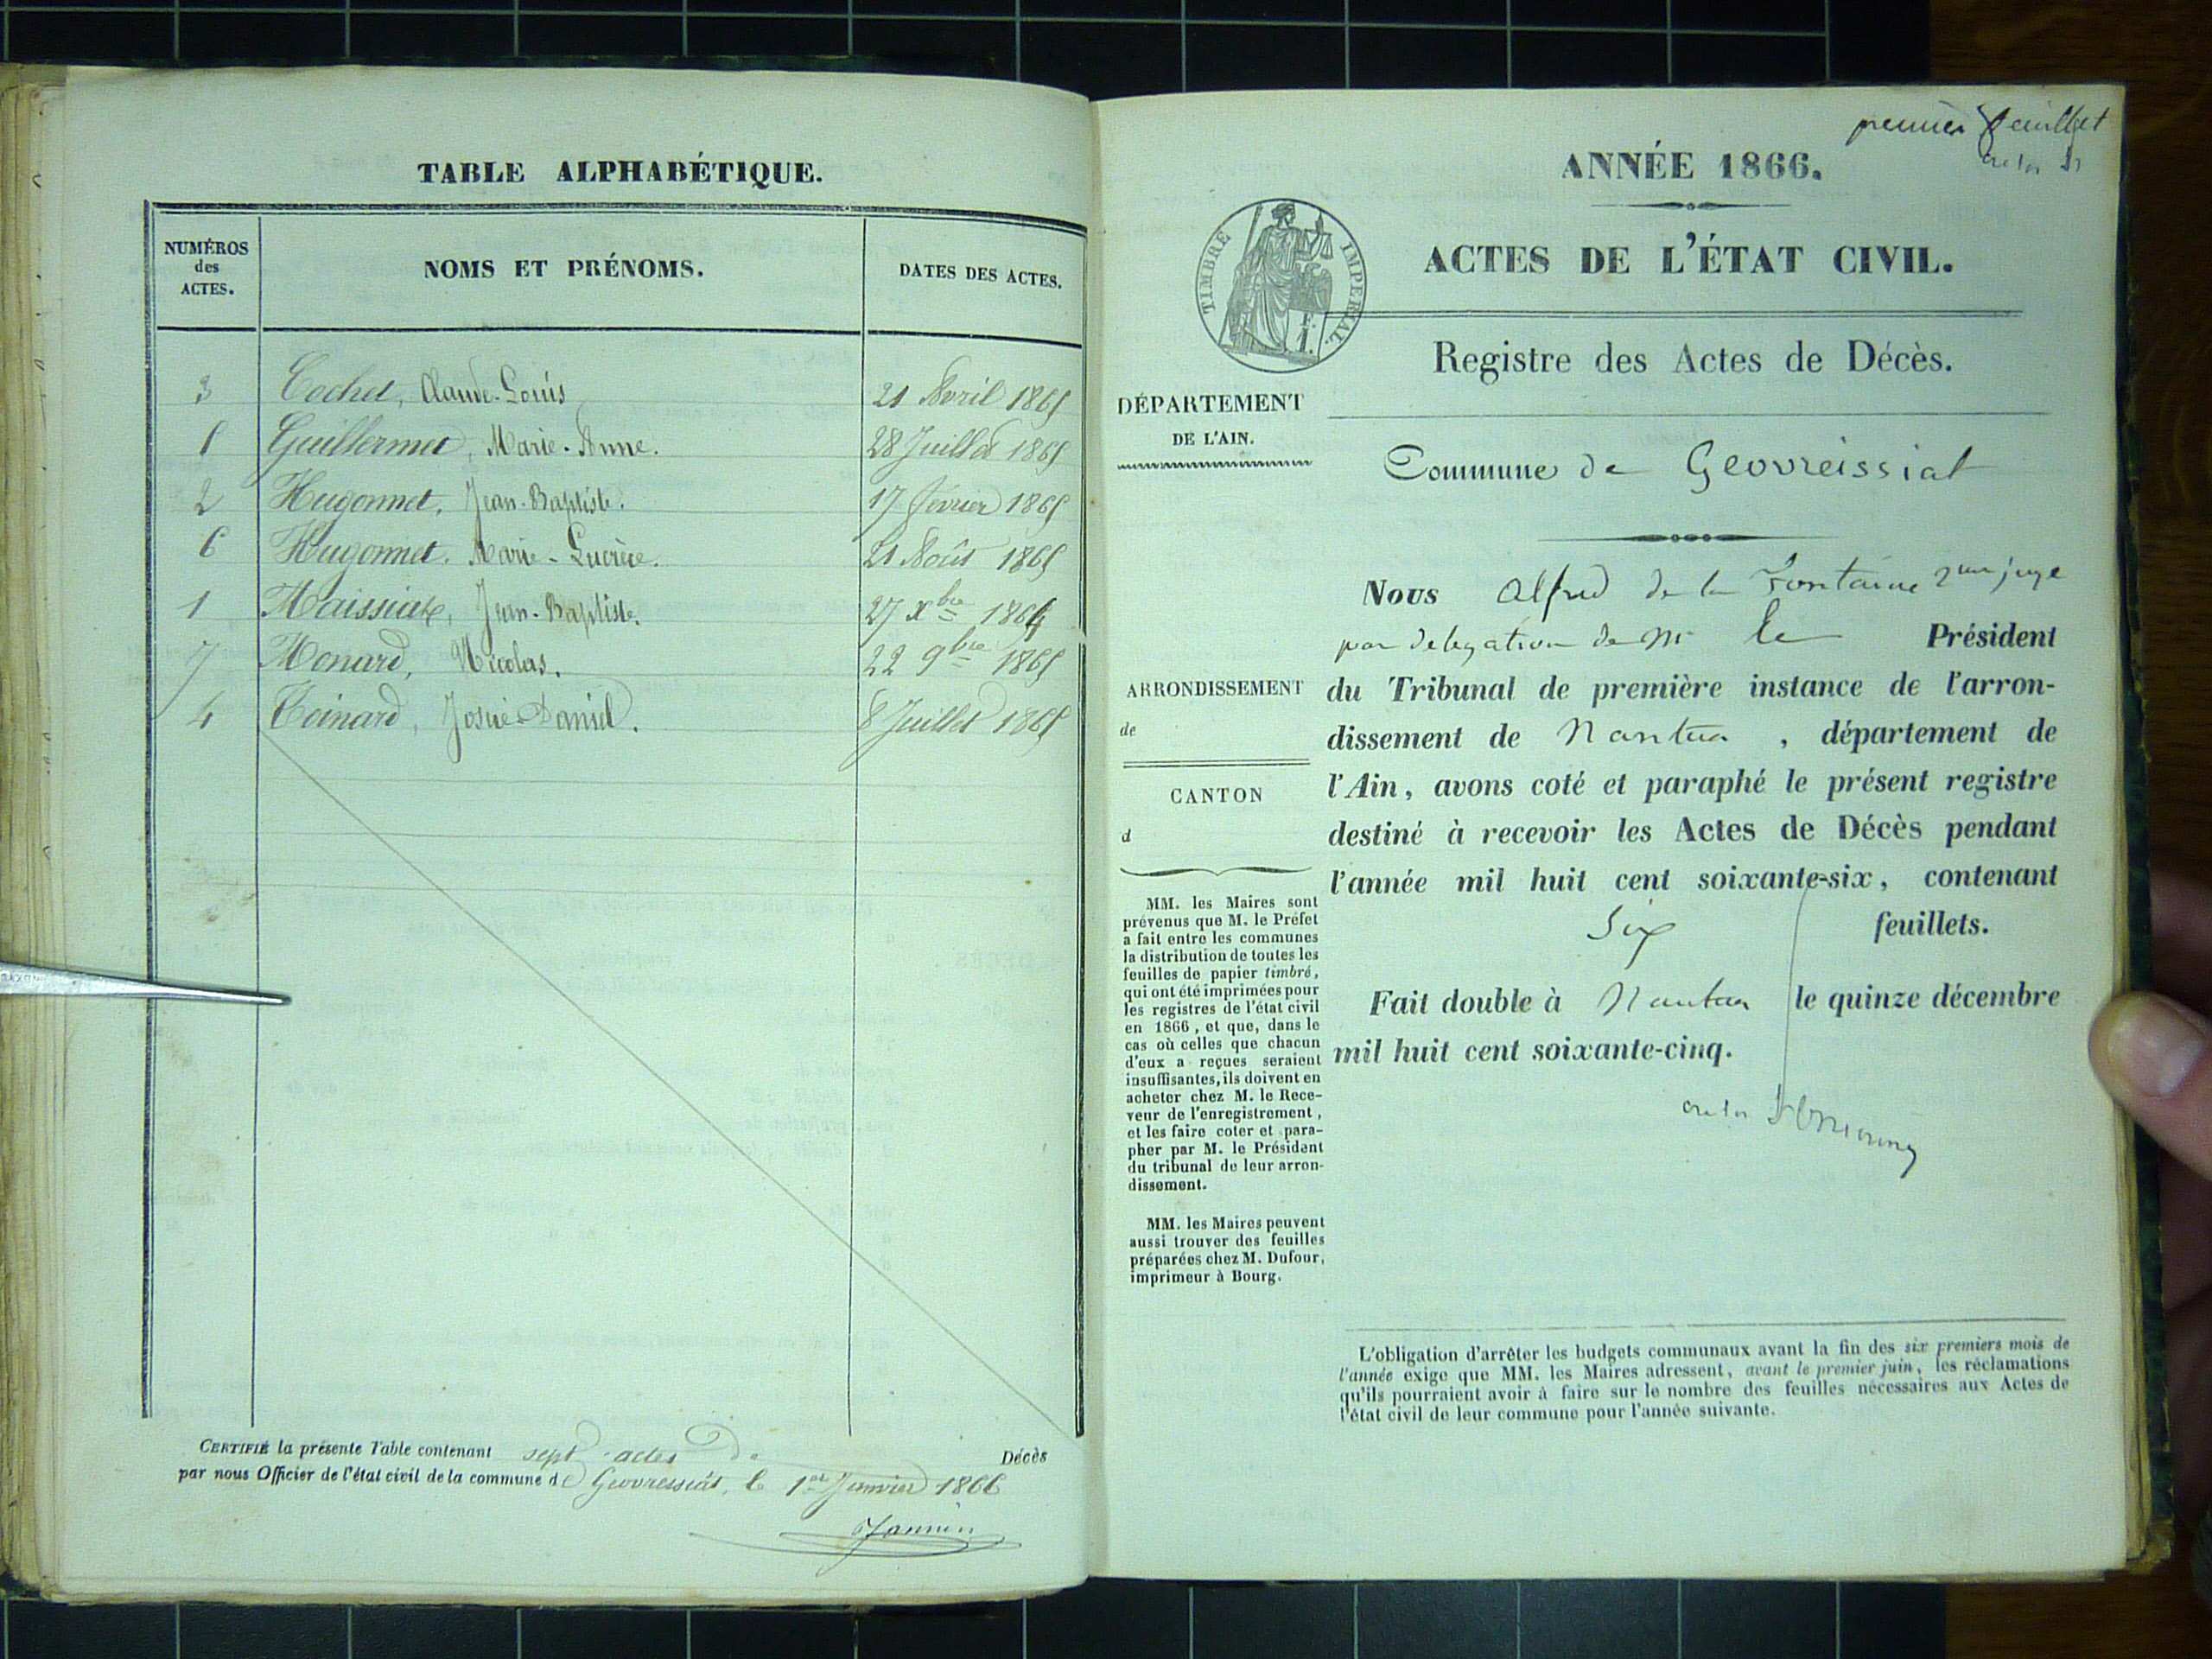 TABLE ALPHABÉTIQUE.
NUMÉROS des ACTES. NOMS ET PRÉNOMS. DATES DES ACTES.
3 Cochet, Claude-Louis 21 Avril 1865
5 Guillermet, Marie-Anne. 28 Juillet 1865
2 Hugonnet, Jean-Baptiste. 17 février 1865
6 Hugonnet, Marie-Lucrèce. 21 Août 1865
1 Maissiat, Jean-Baptiste. 27 Xbre 1864
7 Monard, Nicolas. 22 9bre 1865
4 Josué-Daniel. 8 Juillet 1865
CERTIFIÉ la présente Table contenant sept actes de Décès
par nous Officier de l'état civil de la commune de Geovressiat, le 1er Janvier 1866
Jannin
premier feuillet
ANNÉE 1866.
ACTES DE L'ÉTAT CIVIL.
TIMBRE IMPÉRIAL.
Registre des Actes de Décès.
DÉPARTEMENT
DE L'AIN.
Commune de Geovreissiat
ARRONDISSEMENT
de
CANTON
d
Nous Alfred de la Fontaine juge
par delegation de Mr le Président
du Tribunal de première instance de l'arron-
dissement de Nantua, département de
l'Ain, avons coté et paraphé le présent registre
destiné à recevoir les Actes de Décès pendant
l'année mil huit cent soixante-six, contenant
Six feuillets.
Fait double à Nantua le quinze décembre
mil huit cent soixante-cinq.
MM. les Maires sont
prévenus que M. le Préfet
a fait entre les communes
la distribution de toutes les
feuilles de papier timbré,
qui ont été imprimées pour
les registres de l'état civil
en 1866, et que, dans le
cas où celles que chacun
d'eux a reçues seraient
insuffisantes, ils doivent en
acheter chez M. le Rece-
veur de l'enregistrement,
et les faire coter et para-
pher par M. le Président
du tribunal de leur arron-
dissement.
MM. les Maires peuvent
aussi trouver des feuilles
préparées chez M. Dufour,
imprimeur à Bourg.
L'obligation d'arrêter les budgets communaux avant la fin des six premiers mois de
l'année exige que MM. les Maires adressent, avant le premier juin, les réclamations
qu'ils pourraient avoir à faire sur le nombre des feuilles nécessaires aux Actes de
l'état civil de leur commune pour l'année suivante.